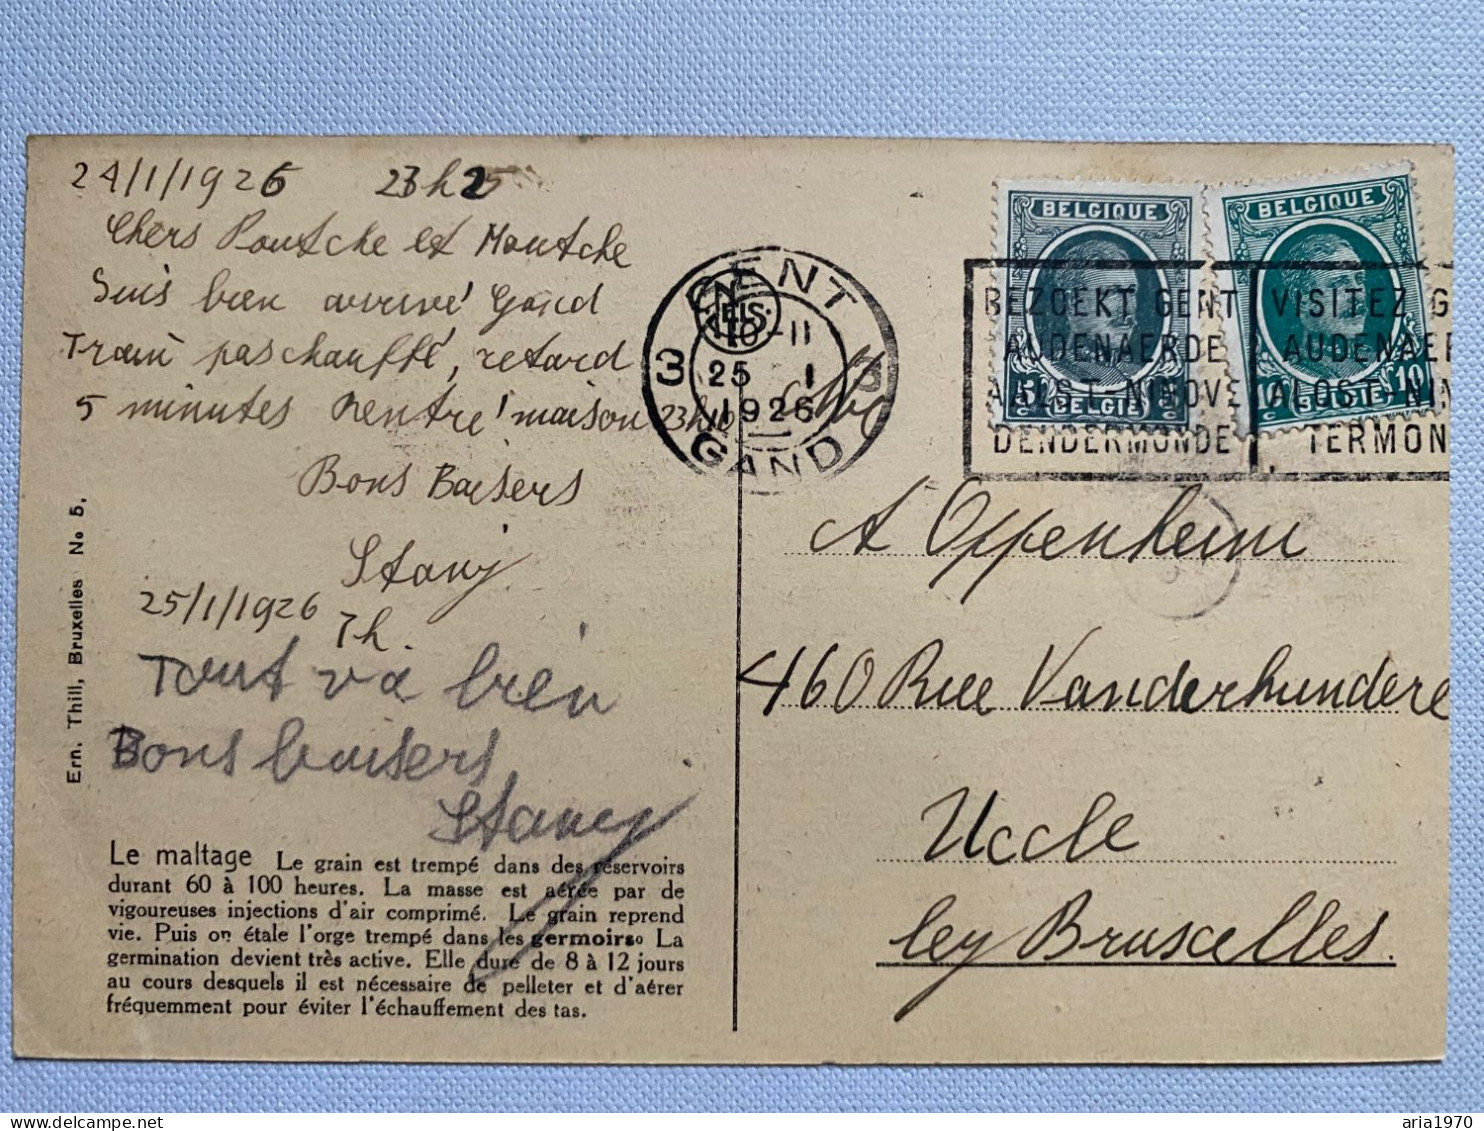 24/1/1926 23h25
Chers Poutche et Moutche
Suis bien arrivé Gand
Train pas chauffé, retard
5 minutes Rentré maison 23h10
Bons Baisers
Stany
25/1/1926
7h.
Tout va bien
Bons baisers
Stany
Ern. Thill, Bruxelles No 5.
Le maltage Le grain est trempé dans des réservoirs
durant 60 à 100 heures. La masse est aérée par de
vigoureuses injections d'air comprimé. Le grain reprend
vie. Puis on étale l'orge trempé dans les germoirs. La
germination devient très active. Elle dure de 8 à 12 jours
au cours desquels il est nécessaire de pelleter et d'aérer
fréquemment pour éviter l'échauffement des tas.
GENT
10-11
3 25 1 3
1926
GAND
BELGIQUE
5
BELGIË
BELGIQUE
10 10
BELGIË
BEZOEKT GENT
AUDENAERDE
AALST-NINOVE
DENDERMONDE
VISITEZ G
AUDENAER
ALOST-NIN
TERMON
A Oppenheim
460 Rue Vanderkundere
Uccle
ley Bruxelles.
aria1970